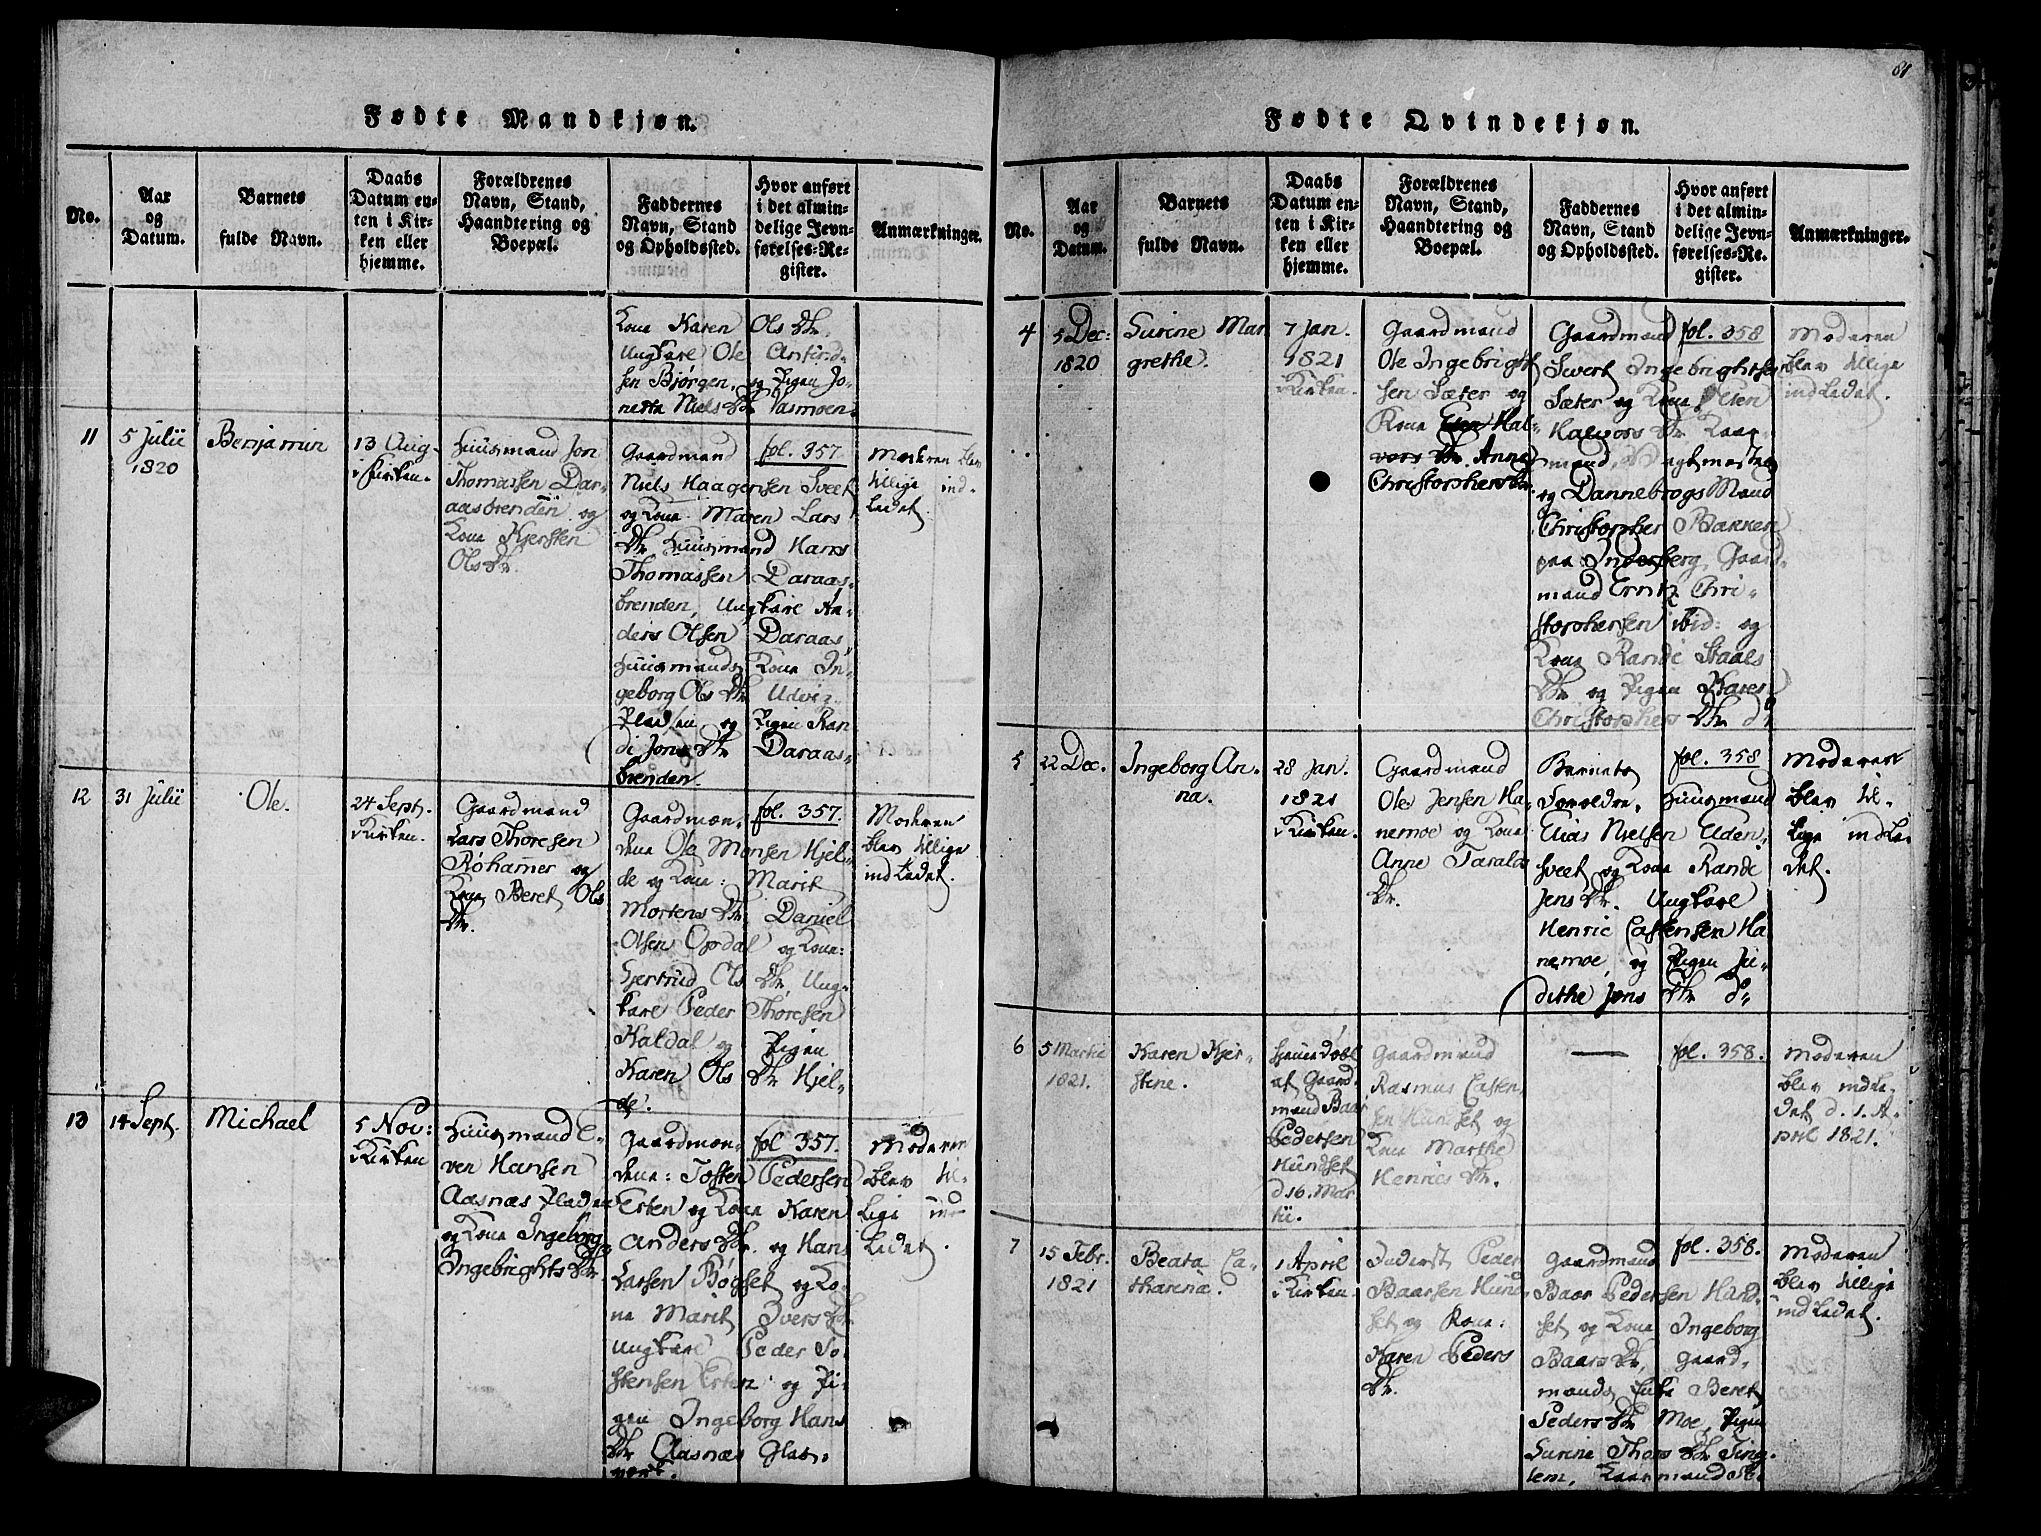 81
Fødte Mandkjøn.
No.
Aar
og
Datum.
Barnets
fulde Navn.
Daabs
Datum en-
ten i Kir-
ken eller
hjemme.
Forældrenes
Navn, Stand,
Haandtering og
Boepæl.
Faddernes
Navn, Stand
og Opholdssted.
Hvor anført
i det almin-
delige Jevn-
førelses-Re-
gister.
Anmærkninger.
Kone Karen Ols Dtr.
Ungkarl Ole
sen Bjørgen, og Pigen Jo-
netta Niels Dtr Vasmoen
11
5 Julii
1820
Benjamin
13 Aug.
i Kirken.
Huusmand Jon
Thomassen Dar-
aasbrenden og
Kone Kjersten
Ols Dtr.
Gaardmand
Niels Haagensen Sveet
og Kone Maren Lars
Dtr. Huusmand Hans
Thomassen Daraas-
brenden, Ungkarl An-
ders Olsen Daraas,
Huusmands Kone In-
geborg Ols Dtr
Pladsen og Pigen Ran-
di Jons Dtr Daraas-
brenden.
fol. 357.
Moderen blev
tillige ind-
ledet.
12
31 Julii
Ole.
24 Sept.
i Kirken.
Gaardmand
Lars Thoresen
Røhamer og
Kone Beret Ols
Dtr.
Gaardmæn-
dene Ole Monsen Hjel-
de og Kone: Marit
Mortens Dtr. Daniel
Olsen Opdal og Kone:
Gjertrud Ols Dtr, Ung-
karl Peder Thoresen
Kaldal og Pigen
Karen Ols Dtr Hjel-
de.
fol. 357.
Moderen
blev tillige
indledet.
13
14 Sept.
Michael
5 Nov:
i Kirken
Huusmand E-
ven Hansen
Aasnæs Pladsen
og Kone Ingeborg
Ingebrights Dtr
Gaardmæn-
dene: Tosten Pedersen
Erten og Kone Karen
Anders Dtr. og Hans
Larsen Bøgset og Ko-
ne Marit Ivers Dtr
Ungkarl Peder To-
stensen Erten og Pi-
gen Ingeborg Hans
Dtr Aasnæs Glas-
værk.
fol. 357.
Moderen
blev til-
lige ind
ledet.
Fødte Qvindekjøn.
No.
Aar
og
Datum.
Barnets
fulde Navn.
Daabs
Datum en-
ten i Kir-
ken eller
hjemme.
Forældrenes
Navn, Stand,
Haandtering og
Boepæl.
Faddernes
Navn, Stand
og Opholdssted.
Hvor anført
i det almin-
delige Jevn-
førelses-Re-
gister.
Anmærkninger.
4
5 Dec:
1820
Surine Mar
grethe.
7 Jan.
1821
i Kirken.
Gaardmand
Ole Ingebright-
sen Sæter og
Kone Hal-
vors Dtr. Anne
Christophers Dtr.
Gaardmand
Sivert Ingebrightsen
Sæter og Kone
Halvors Dtr.
mand,
og Dannebrogs Mand
Christopher Bakken
paa Inderberg, Gaard-
mand Chri-
stophersen ibid: og
Kone Rande Staals
Dtr og Pigen Karen
Christophers Dtr do
fol. 358
Moderen
blev tillige
indledet.
5
22 Dec.
Ingeborg An-
na.
28 Jan.
1821
i Kirken.
Gaardmand
Ole Jensen Ha-
nemoe og Kone
Anne Taralds
Dtr.
Barnets
Foreldre, Huusmand
Elias Nielsen Uden-
sveet og Kone Rande
Jens Dtr. Ungkarl
Henric Castensen Ha
nemoe, og Pigen Ju-
dithe Jens Dtr do
fol. 358
Moderen
blev til-
lige indle-
det.
6
5 Martii
1821.
Karen Kjer-
stine.
Hjemmedøbt
af Gaard-
mand Baar
Pedersen
Hundset
d 16. Mar
tii.
Gaardmand
Rasmus Casten-
sen Hundset og
Kone Marthe
Henrics Dtr.
fol. 358.
Moderen
blev indle-
det d. 1. A-
pril 1821.
7
15 Febr.
1821
Beata Ca-
tharina.
1 April
i Kirken.
Inderst Peder
Baarsen Hund-
set og Kone:
Karen Peders
Dtr.
Gaardmand
Baar Pedersen Hund-
set og Kone Ingeborg
Baars Dtr, Gaard-
mands Enke Beret
Peders Dtr Moe, Pigen
Surine Thors Dtr Ting-
lem,
fol. 358.
Moderen
blev tillige
indledet.